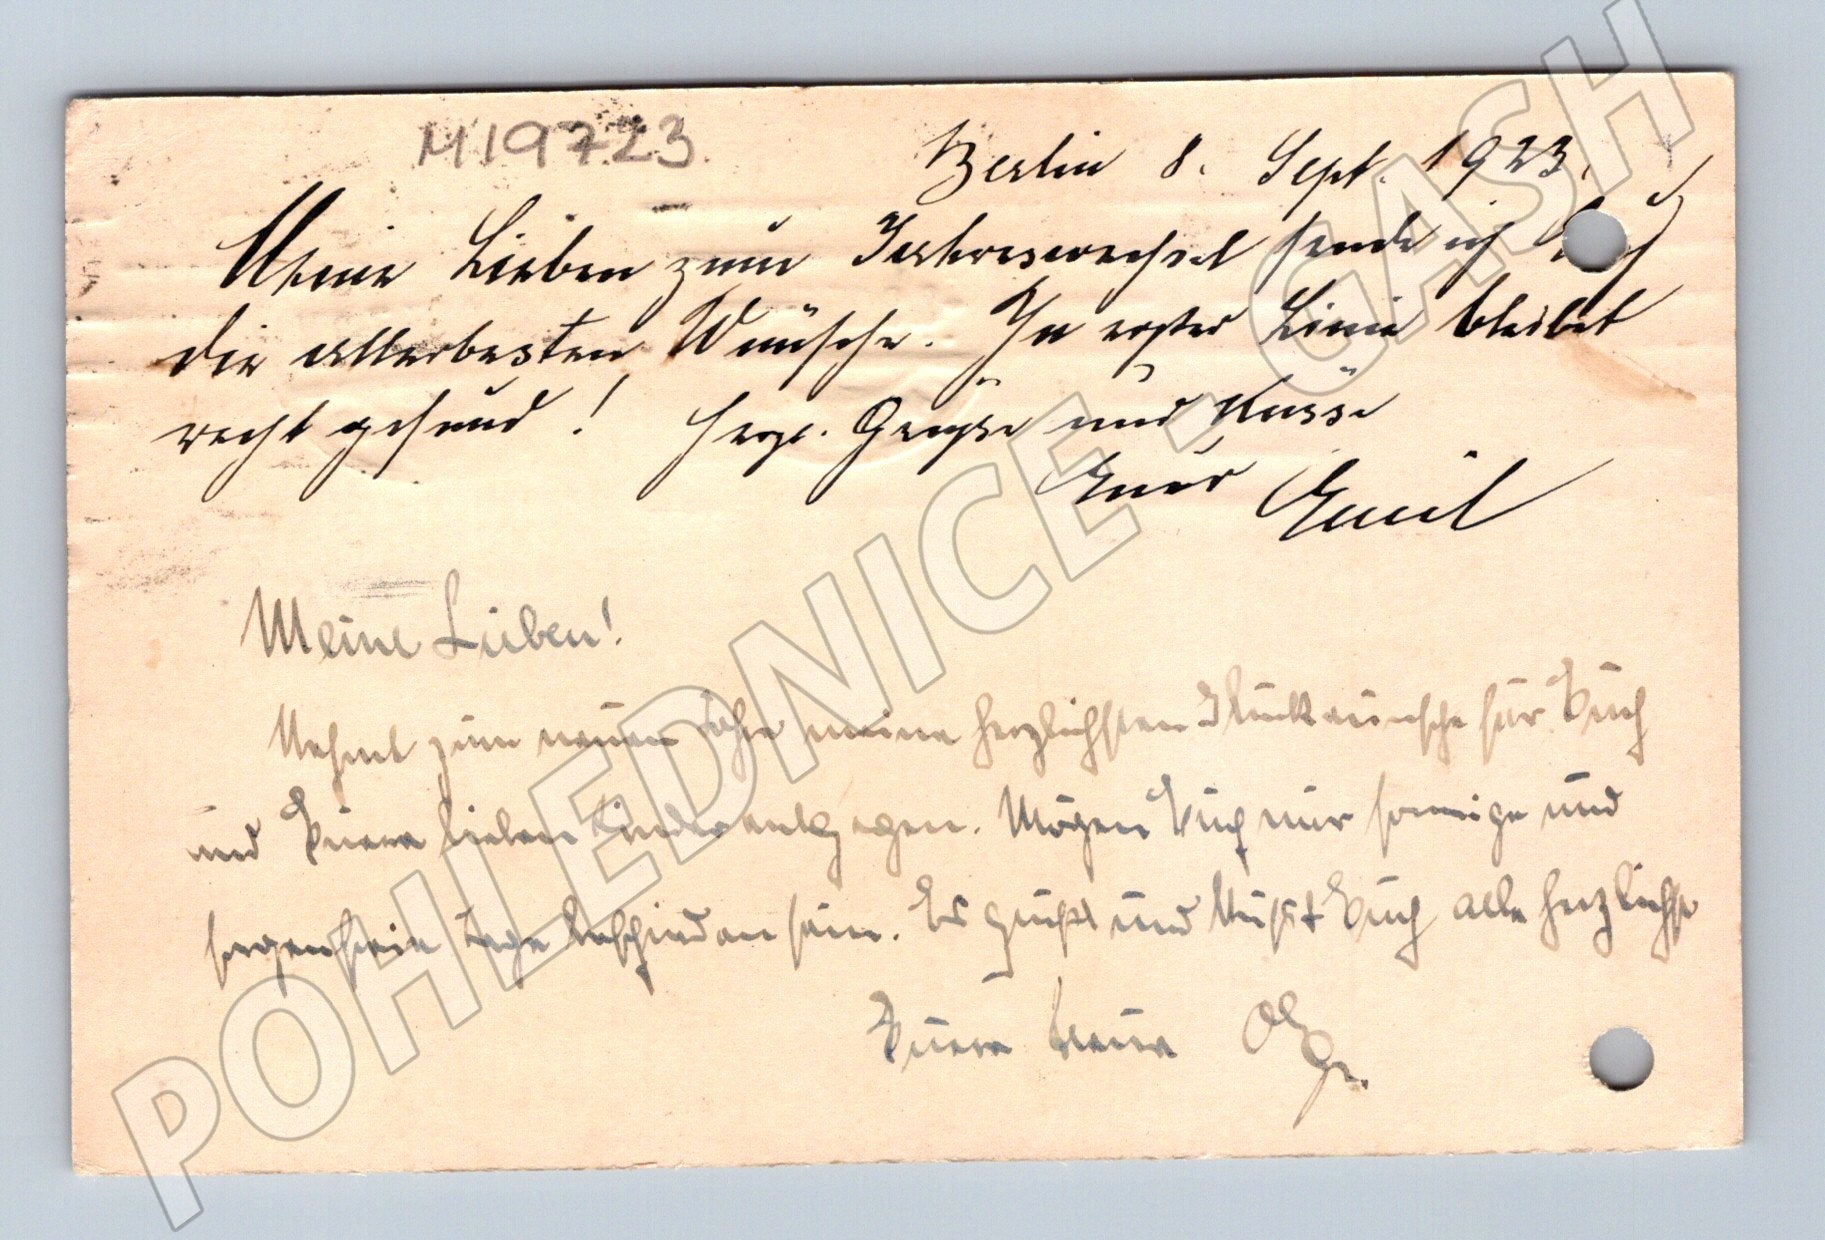 M19723.
Berlin 8. Sept. 1923.
Meine Lieben zum Jahreswechsel sende ich
die allerbesten Wünsche. In erster Linie bleibet
recht gesund! Herzl. Grüsse und Küsse
Euer Emil
Meine Lieben!
Nehmt zum neuen Jahr meine herzlichsten Glückwünsche für Euch
und Euere lieben Kinder entgegen. Mögen Euch nur sonnige und
Tage beschieden sein. Es grüßt und küßt Euch alle herzlichst
Euere
POHLEDNICE - GASH